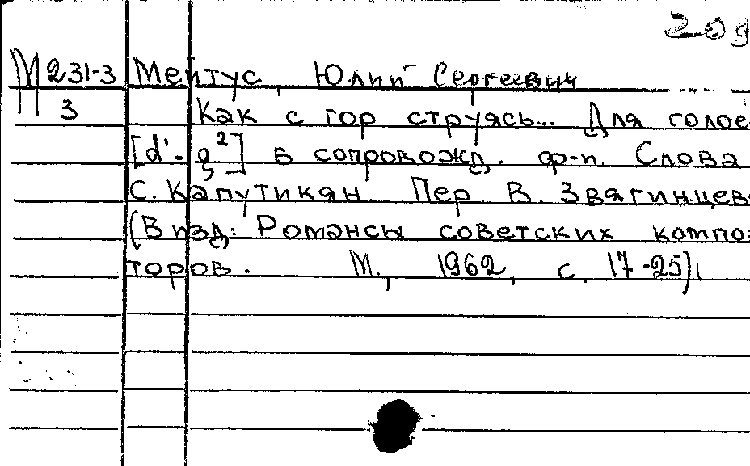 209
М 231-3 Мейтус, Юлий Сергеевич
3 Как с гор струясь... Для голос
[d¹-g²] в сопровожд. ф-п. Слова
С. Капутикян. Пер. В. Звягинцев
(В изд: Романсы советских компо
торов. М., 1962, с. 17-25).